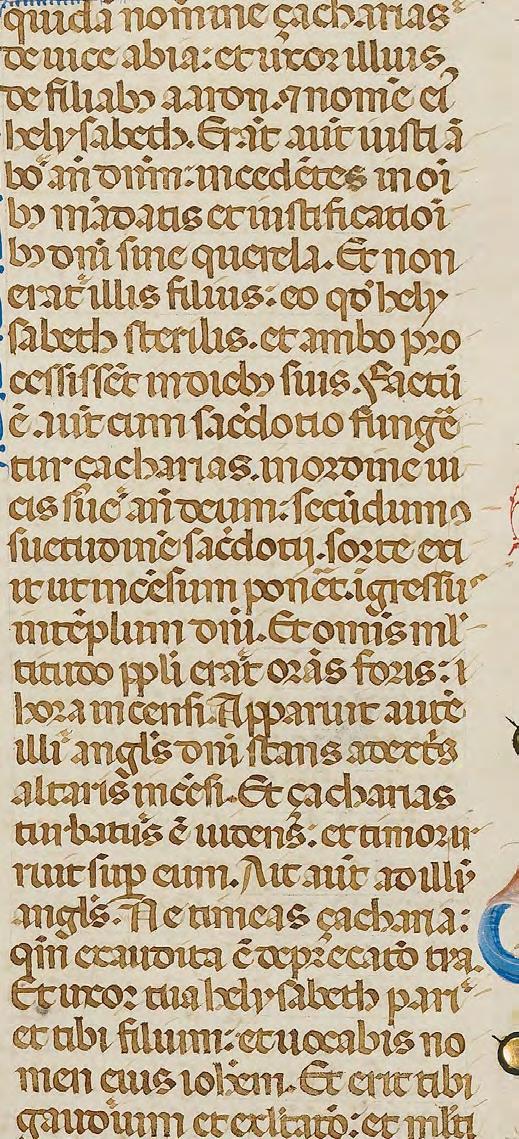 quidā nomine çacharias
de uice abia: et uxor illius
de filiabꝫ aaron. ⁊ nomē ei᾽
helysabeth. Erāt aūt iusti ā
bo añ dn̄m: incedētes in oī
bꝫ mādatis et iustificatioī
bꝫ dn̄i sine querela. Et non
erat illis filius: eo qd᾽ hely
sabeth sterilis. et ambo pro
cessissēt in diebꝫ suis. Factū
ē. aūt cum sac̄dotio fungē
tur çacharias. in ordine ui
cis sue añ deum: secūdum ꝯ
suetudinē sac̄dotij. sorte exi
it ut incēsum ponēt. īgressus
in tēplum dn̄i. Et omīs ml᾽
titudo ppl̄i erat orās foris: ī
hora incensi. Apparuit autē
illi angl̄s dn̄i stans a dextˢ
altaris incēsi. Et çacharias
turbatus ē uidens: et timor ir
ruit sup̄ eum. Ait aūt ad illū
angl̄s. Ne timeas çacharia:
qm̄ exaudita ē dep̄catō tua.
Et uxor tua helysabeth pari
et tibi filium: et uocabis no
men eius ioh̄em. Et erit tibi
gaudium et exl̄tatō: et ml̄ti